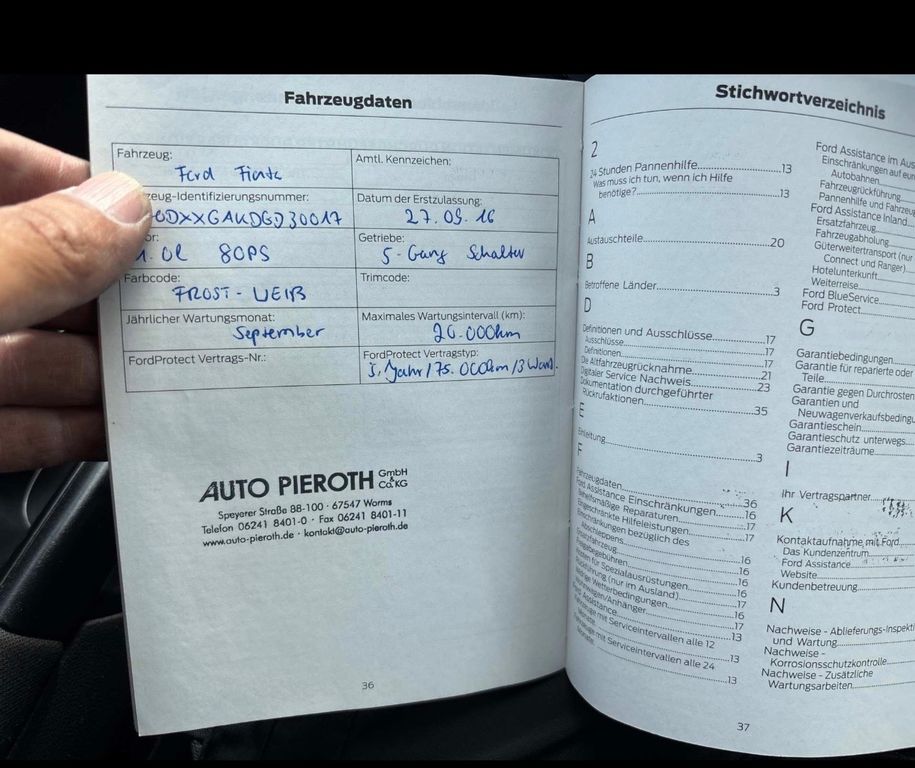 Fahrzeugdaten
Fahrzeug:
Ford Fiesta
Amtl. Kennzeichen:
zeug-Identifizierungsnummer:
Datum der Erstzulassung:
27.09.16
1.0l 80PS
Getriebe:
5-Gang Schalter
Farbcode:
FROST-WEIß
Trimcode:
Jährlicher Wartungsmonat:
September
Maximales Wartungsintervall (km):
20.000km
FordProtect Vertrags-Nr.:
FordProtect Vertragstyp:
AUTO PIEROTH GmbH & Co. KG
Speyerer Straße 88-100 · 67547 Worms
Telefon 06241 8401-0 · Fax 06241 8401-11
www.auto-pieroth.de · kontakt@auto-pieroth.de
36
Stichwortverzeichnis
2
24 Stunden Pannenhilfe 13
Was muss ich tun, wenn ich Hilfe
benötige? 13
A
Austauschteile 20
B
Betroffene Länder 3
D
Definitionen und Ausschlüsse 17
Ausschlüsse 17
Definitionen 17
Die Altfahrzeugrücknahme 21
Digitaler Service Nachweis 23
Dokumentation durchgeführter
Rückrufaktionen 35
E
Einleitung 3
F
Fahrzeugdaten 36
Ford Assistance Einschränkungen 16
Behelfsmäßige Reparaturen 17
Eingeschränkte Hilfeleistungen 17
Einschränkungen bezüglich des
Abschleppens 16
Ersatzfahrzeug 16
Freigabegebühren 16
Kosten für Spezialausrüstungen 16
Rückführung (nur im Ausland) 17
Widrige Wetterbedingungen 16
Wohnwagen/Anhänger 17
Ford Assistance 13
Fahrzeuge mit Serviceintervallen alle 12
Monate 13
Fahrzeuge mit Serviceintervallen alle 24
Monate 13
Ford Assistance im Aus
Einschränkungen auf eur
Autobahnen
Fahrzeugrückführung
Pannenhilfe und Fahrzeu
Ford Assistance Inland
Ersatzfahrzeug
Fahrzeugabholung
Güterweitertransport (nur
Connect und Ranger)
Hotelunterkunft
Weiterreise
Ford BlueService
Ford Protect
G
Garantiebedingungen
Garantie für reparierte oder
Teile
Garantie gegen Durchrosten
Garantien und
Neuwagenverkaufsbeding
Garantieschein
Garantieschutz unterwegs
Garantiezeiträume
I
Ihr Vertragspartner
K
Kontaktaufnahme mit Ford
Das Kundenzentrum
Ford Assistance
Website
Kundenbetreuung
N
Nachweise - Ablieferungs-Inspekti
und Wartung
Nachweise -
Korrosionsschutzkontrolle
Nachweise - Zusätzliche
Wartungsarbeiten
37